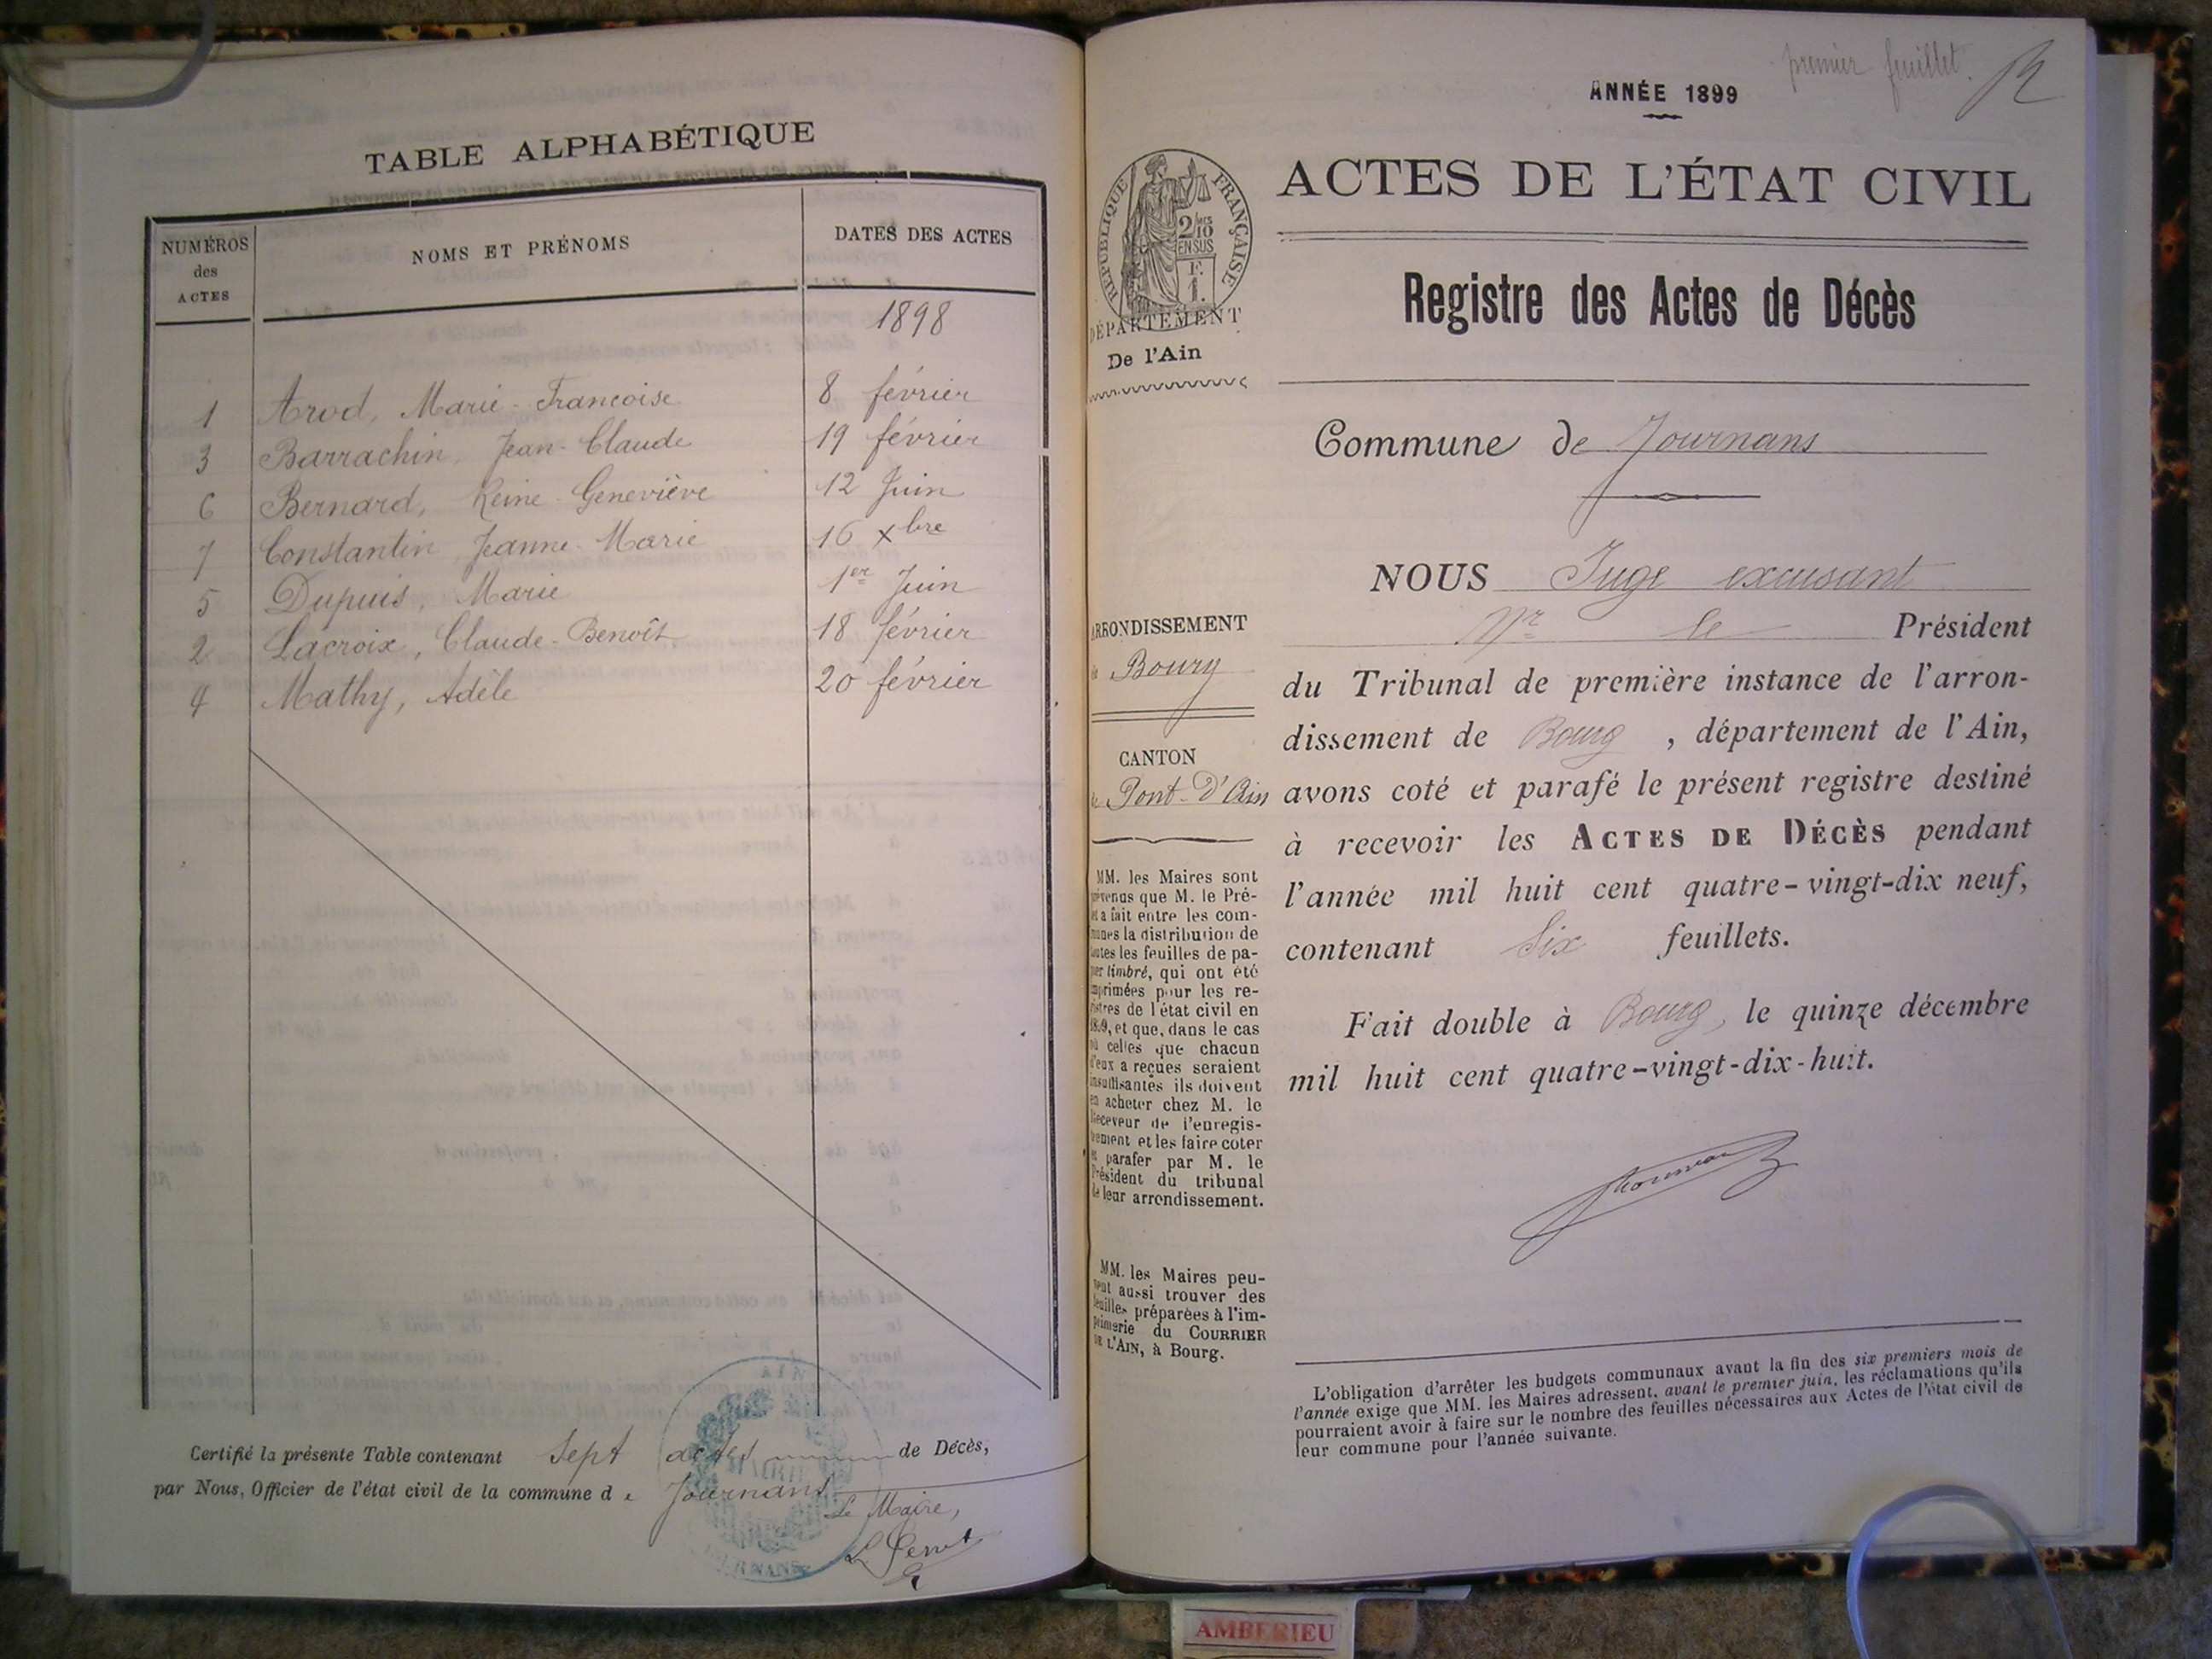 TABLE ALPHABÉTIQUE
NUMÉROS des ACTES
NOMS ET PRÉNOMS
DATES DES ACTES
1898
1 Arod, Marie-Françoise 8 février
3 Barrachin, Jean-Claude 19 février
6 Bernard, Reine-Geneviève 12 Juin
7 Constantin, Jeanne-Marie 16 xbre
5 Dupuis, Marie 1er Juin
2 Lacroix, Claude-Benoît 18 février
4 Mathy, Adèle 20 février
Certifié la présente Table contenant Sept actes de Décès,
par Nous, Officier de l'état civil de la commune de Journans
Le Maire,
premier feuillet.
ANNÉE 1899
ACTES DE L'ÉTAT CIVIL
RÉPUBLIQUE FRANÇAISE
2/10 EN SUS
F. 1.
DÉPARTEMENT
De l'Ain
Registre des Actes de Décès
Commune de Journans
ARRONDISSEMENT
de Bourg
CANTON
de Pont-d'Ain
MM. les Maires sont
prévenus que M. le Pré-
fet a fait entre les com-
munes la distribution de
toutes les feuilles de pa-
pier timbré, qui ont été
imprimées pour les re-
gistres de l'état civil en
1899, et que, dans le cas
où celles que chacun
d'eux a reçues seraient
insuffisantes ils doivent
en acheter chez M. le
Receveur de l'enregis-
trement et les faire coter
et parafer par M. le
Président du tribunal
de leur arrondissement.
MM. les Maires peu-
vent aussi trouver des
feuilles préparées à l'im-
primerie du COURRIER
DE L'AIN, à Bourg.
NOUS Juge excusant
Mr le Président
du Tribunal de première instance de l'arron-
dissement de Bourg, département de l'Ain,
avons coté et parafé le présent registre destiné
à recevoir les ACTES DE DÉCÈS pendant
l'année mil huit cent quatre-vingt-dix neuf,
contenant Six feuillets.
Fait double à Bourg, le quinze décembre
mil huit cent quatre-vingt-dix-huit.
L'obligation d'arrêter les budgets communaux avant la fin des six premiers mois de
l'année exige que MM. les Maires adressent, avant le premier juin, les réclamations qu'ils
pourraient avoir à faire sur le nombre des feuilles nécessaires aux Actes de l'état civil de
leur commune pour l'année suivante.
AMBERIEU